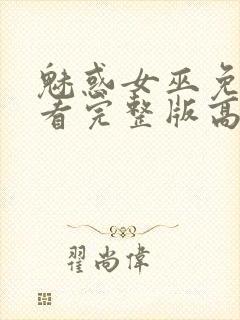 魅惑女巫免
看完整版高
翟尚偉